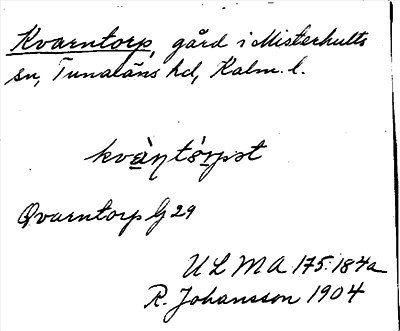 Kvarntorp, gård i Misterhults
sn, Tunaläns hd, Kalm. l.
kvàṇtórpst
Qvarntorp G 29
ULMA 175:184a
R. Johansson 1904